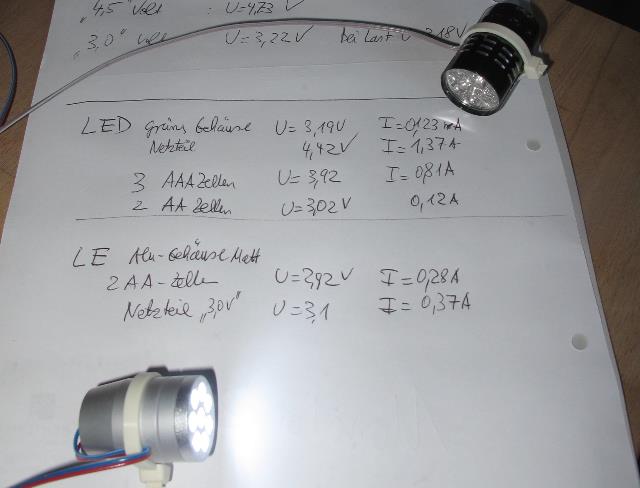 "4,5" Volt : U=4,73 V
"3,0" Volt U=3,22V bei Last U 3,18V
LED grünes Gehäuse U=3,19V I=0,123mA
Netzteil 4,42V I=1,37A
3 AAA Zellen U=3,92 I=0,81A
2 AA Zellen U=3,02V 0,12A
LE Alu-Gehäuse Matt
2 AA-Zellen U=2,92V I=0,28A
Netzteil "3,0V" U=3,1 I=0,37A